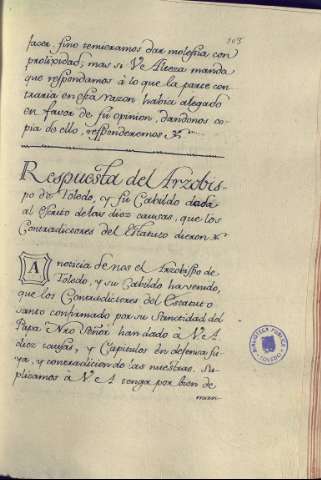 103
facer, sino temieramos dar molestia con
prolixidad, mas si Ve Alteza manda
que respondamos à lo que la parte con
traria en esta razon habia alegado
en favor de su opinion, dandonos co
pia de ello, responderemos &c.
Respuesta del Arzobis-
po de Toledo, y su Cabildo dada
al Escrito de las diez causas, que los
Contradictores del Estatuto dieron &c.
A noticia de nos el Arzobispo de
Toledo, y su Cabildo ha venido,
que los Contradictores del Estatuto
santo confirmado por su Santidad del
Papa Nro Señor han dado à V A
diez causas, y Capitulos en defensa su
ya, y contradicion de las nuestras. Su
plicamos à V A tenga por bien de
man
BIBLIOTECA PUBLICA
TOLEDO